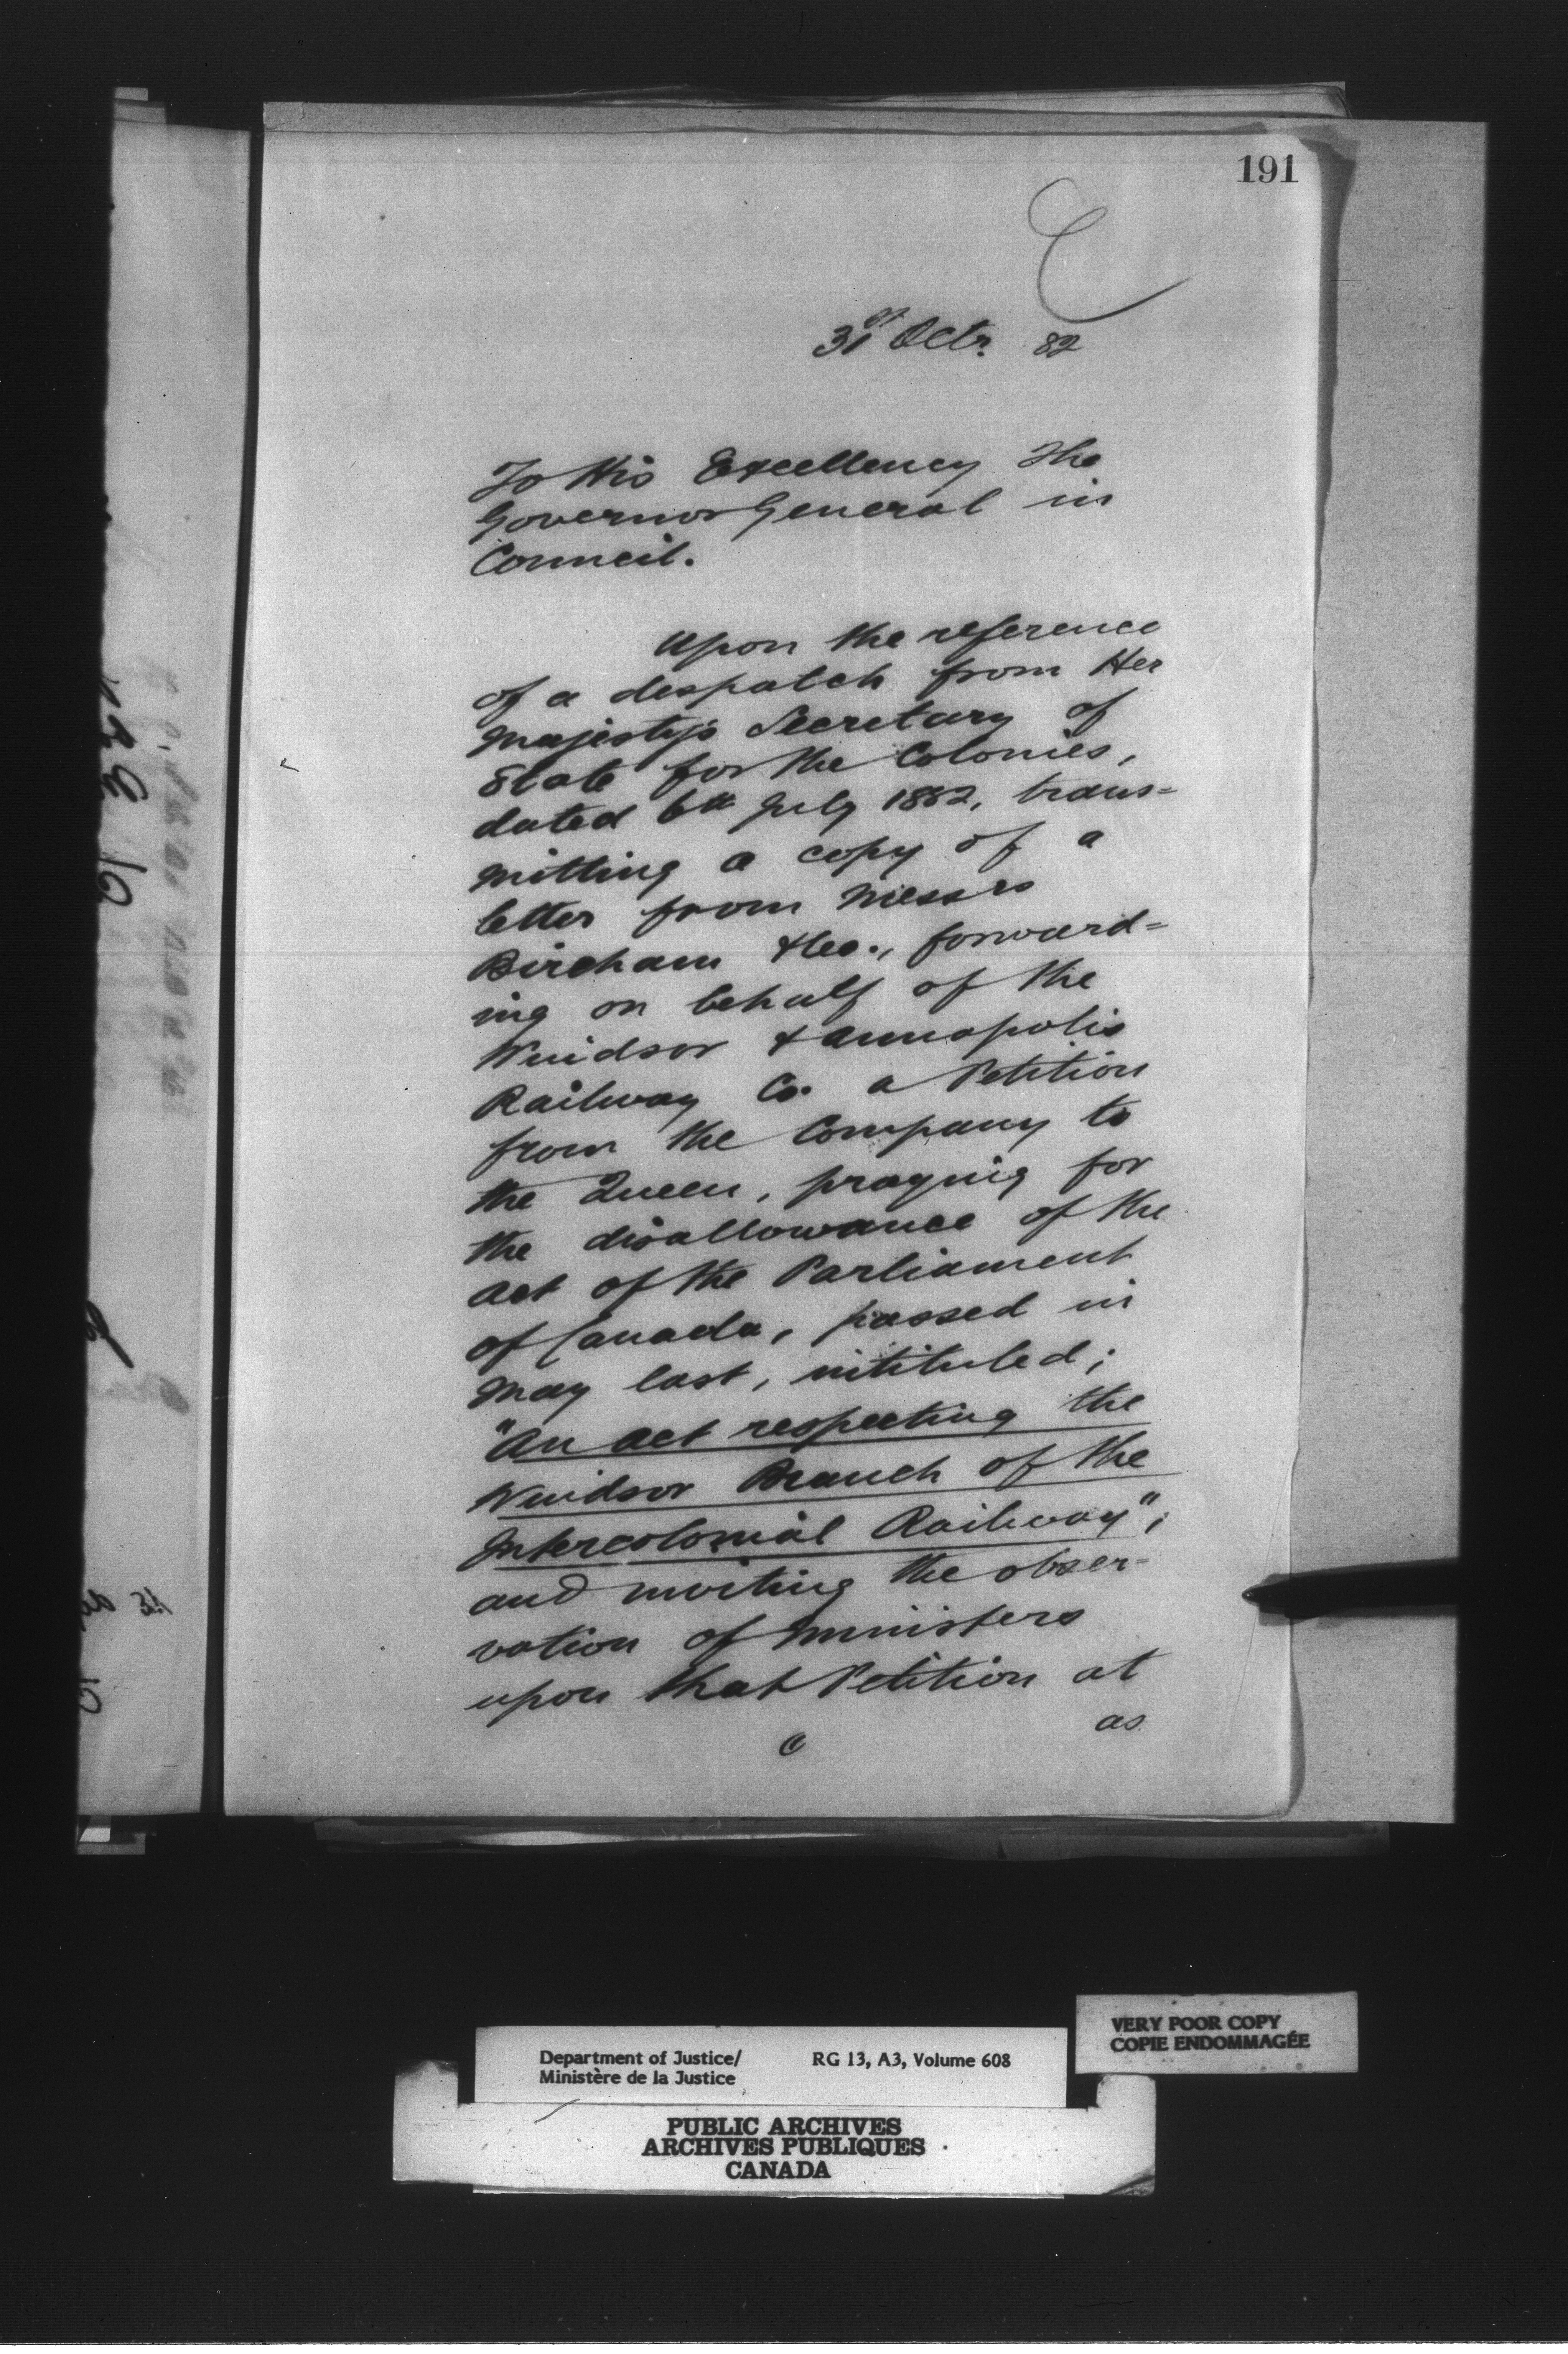 191
31st Octr. 82
To His Excellency The
Governor General in
Council.
Upon the reference
of a despatch from Her
Majesty's Secretary of
State for the Colonies,
dated 6th July 1882, trans=
mitting a copy of a
letter from Messrs
Bircham & Co., forward=
ing on behalf of the
Windsor & Annapolis
Railway Co. a Petition
from the Company to
the Queen, praying for
the disallowance of the
Act of the Parliament
of Canada, passed in
May last, intituled;
"An Act respecting the
Windsor Branch of the
Intercolonial Railway";
and inviting the obser=
vation of Ministers
upon that Petition at
as
Department of Justice/
Ministère de la Justice
RG 13, A3, Volume 608
VERY POOR COPY
COPIE ENDOMMAGÉE
PUBLIC ARCHIVES
ARCHIVES PUBLIQUES
CANADA